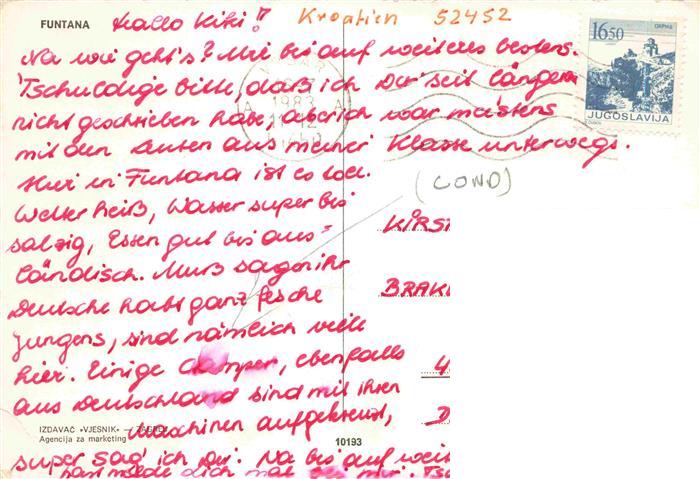 FUNTANA
Hallo Kiki!!
Kroatien 52452
Na wie geht's? Mir bis auf weiteres bestens.
'Tschuldige bitte, daß ich Dir seit längerm
nicht geschrieben habe, aber ich war meistens
mit den Leuten aus meiner Klasse unterwegs.
Hier in Funtana ist es toll.
Wetter heiß, Wasser super bis
salzig, Essen gut bis aus-
ländisch. Muß sagen ihr
Deutsche habt ganz fesche
Jungens, sind nämlich viele
hier. Einige Camper, ebenfalls
aus Deutschland sind mit ihren
Maschinen aufgekreuzt,
super sag' ich Dir. Na bis auf weit
16,50
JUGOSLAVIJA
1983
(COND)
KIRST
BRAK
IZDAVAČ «VJESNIK» – ZAGREB
Agencija za marketing
10193